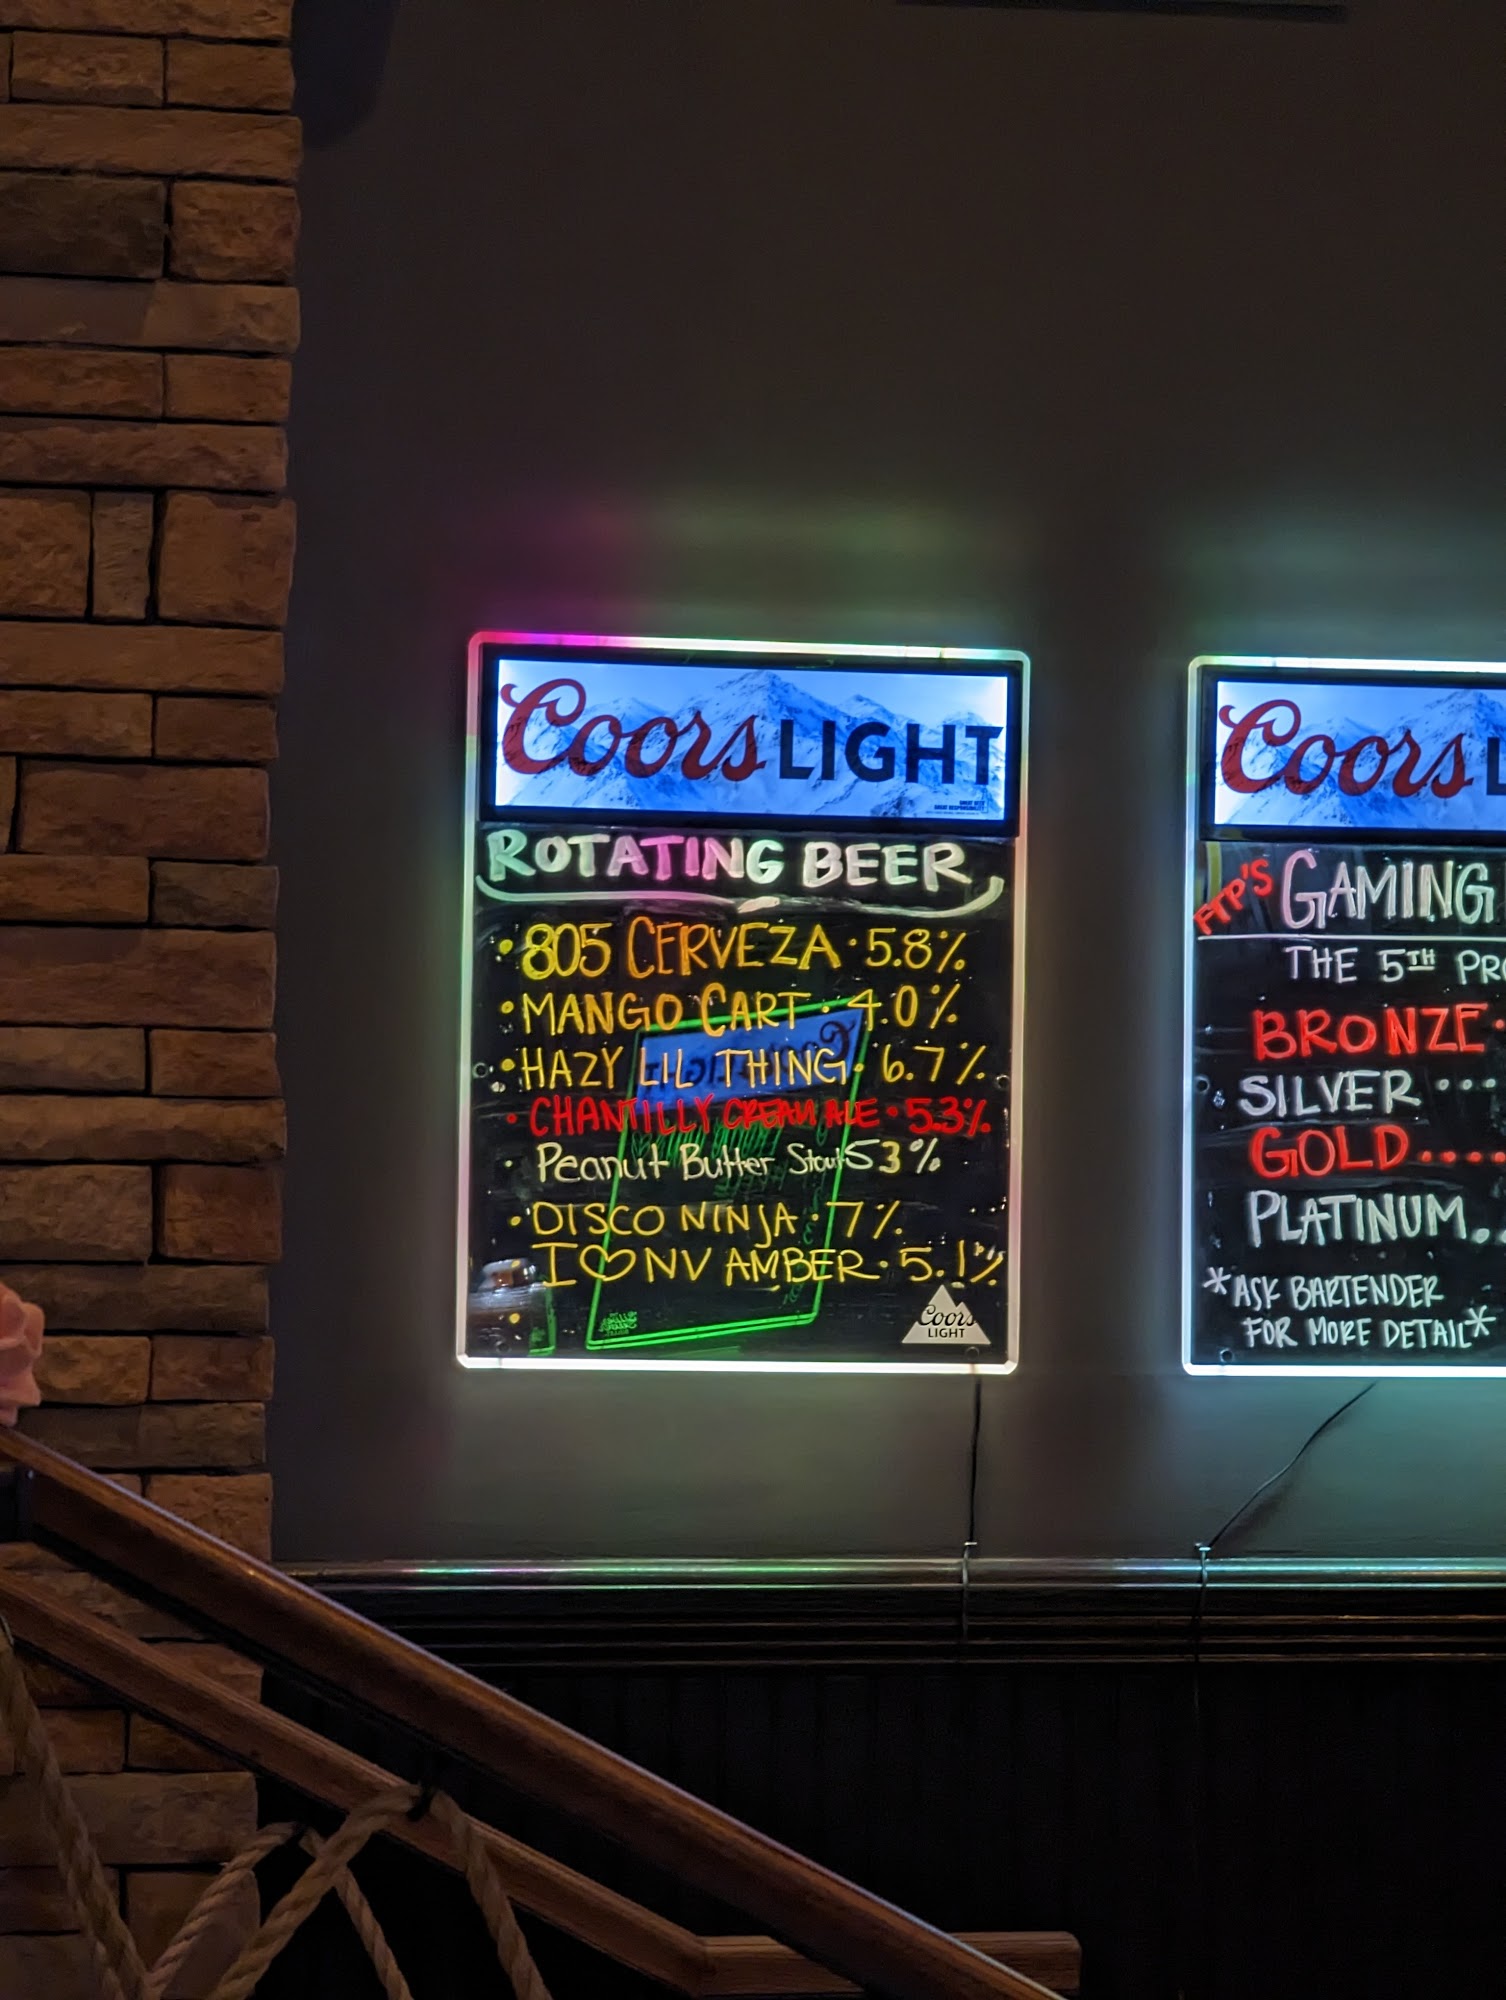 Coors LIGHT
ROTATING BEER
• 805 CERVEZA • 5.8%
• MANGO CART • 4.0%
• HAZY LIL THING • 6.7%
• CHANTILLY CREAM ALE • 5.3%
• Peanut Butter Stout 53%
• DISCO NINJA • 7%
• I ♡ NV AMBER • 5.1%
Coors
LIGHT
Coors L
FTP'S GAMING
THE 5TH PRO
BRONZE
SILVER ...
GOLD ....
PLATINUM..
*ASK BARTENDER
FOR MORE DETAIL*